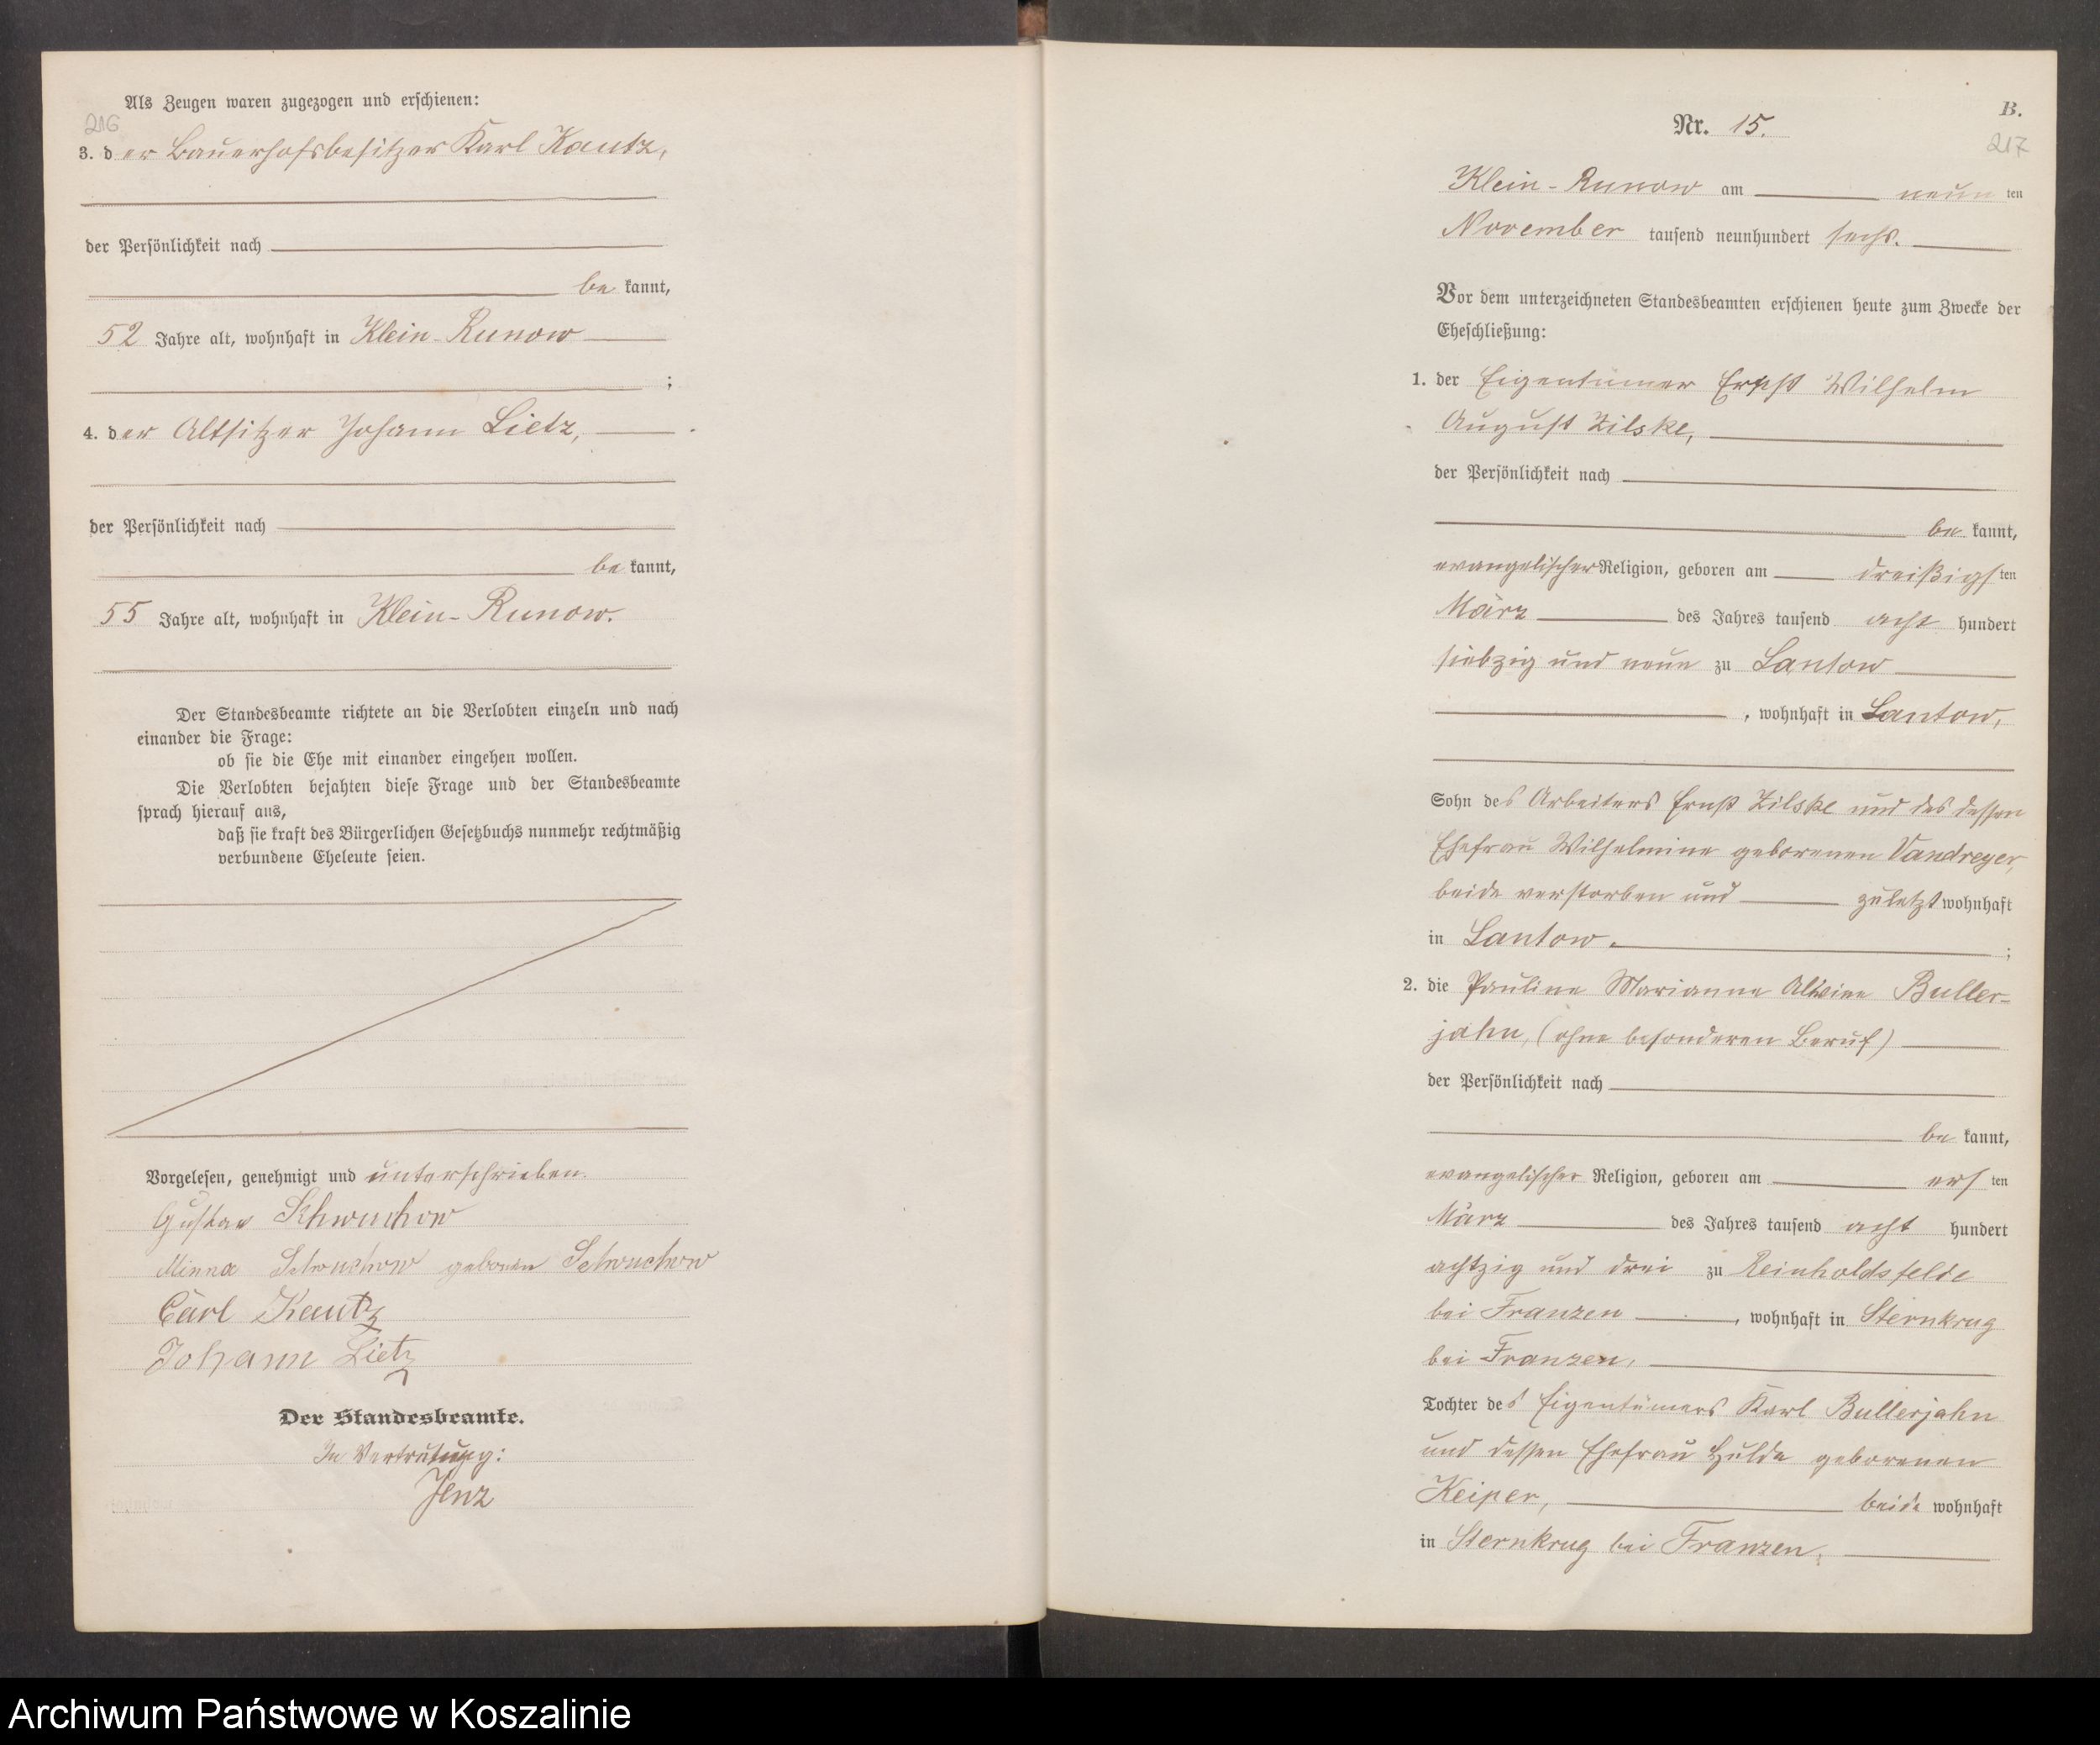 Als Zeugen waren zugezogen und erschienen:
216
3. der Bauerhofsbesitzer Karl Kautz,
der Persönlichkeit nach
be kannt,
52 Jahre alt, wohnhaft in Klein-Runow
;
4. der Altsitzer Johann Lietz,
der Persönlichkeit nach
be kannt,
55 Jahre alt, wohnhaft in Klein-Runow.
Der Standesbeamte richtete an die Verlobten einzeln und nach
einander die Frage:
ob sie die Ehe mit einander eingehen wollen.
Die Verlobten bejahten diese Frage und der Standesbeamte
sprach hierauf aus,
daß sie kraft des Bürgerlichen Gesetzbuchs nunmehr rechtmäßig
verbundene Eheleute seien.
Vorgelesen, genehmigt und unterschrieben.
Gustav Schwuchow
Minna Schwuchow geboren Schwuchow
Carl Kautz
Johann Lietz
Der Standesbeamte.
In Vertretung:
Jenz
B.
Nr. 15.
217
Klein-Runow am neun ten
November tausend neunhundert sechs.
Vor dem unterzeichneten Standesbeamten erschienen heute zum Zwecke der
Eheschließung:
1. der Eigentümer Ernst Wilhelm
August Zilske,
der Persönlichkeit nach
be kannt,
evangelischer Religion, geboren am dreißigs ten
März des Jahres tausend acht hundert
siebzig und neun zu Lantow
, wohnhaft in Lantow,
Sohn des Arbeiters Ernst Zilske und des dessen
Ehefrau Wilhelmine geborenen Vandreyer,
beide verstorben und zuletzt wohnhaft
in Lantow. ;
2. die Pauline Marianne Alwine Buller-
jahn, (ohne besonderen Beruf)
der Persönlichkeit nach
be kannt,
evangelischer Religion, geboren am ers ten
März des Jahres tausend acht hundert
achtzig und drei zu Reinholdsfelde
bei Franzen , wohnhaft in Sternkrug
bei Franzen,
Tochter des Eigentümers Karl Bullerjahn
und dessen Ehefrau Hulda geborenen
Keiper, beide wohnhaft
in Sternkrug bei Franzen.
Archiwum Państwowe w Koszalinie